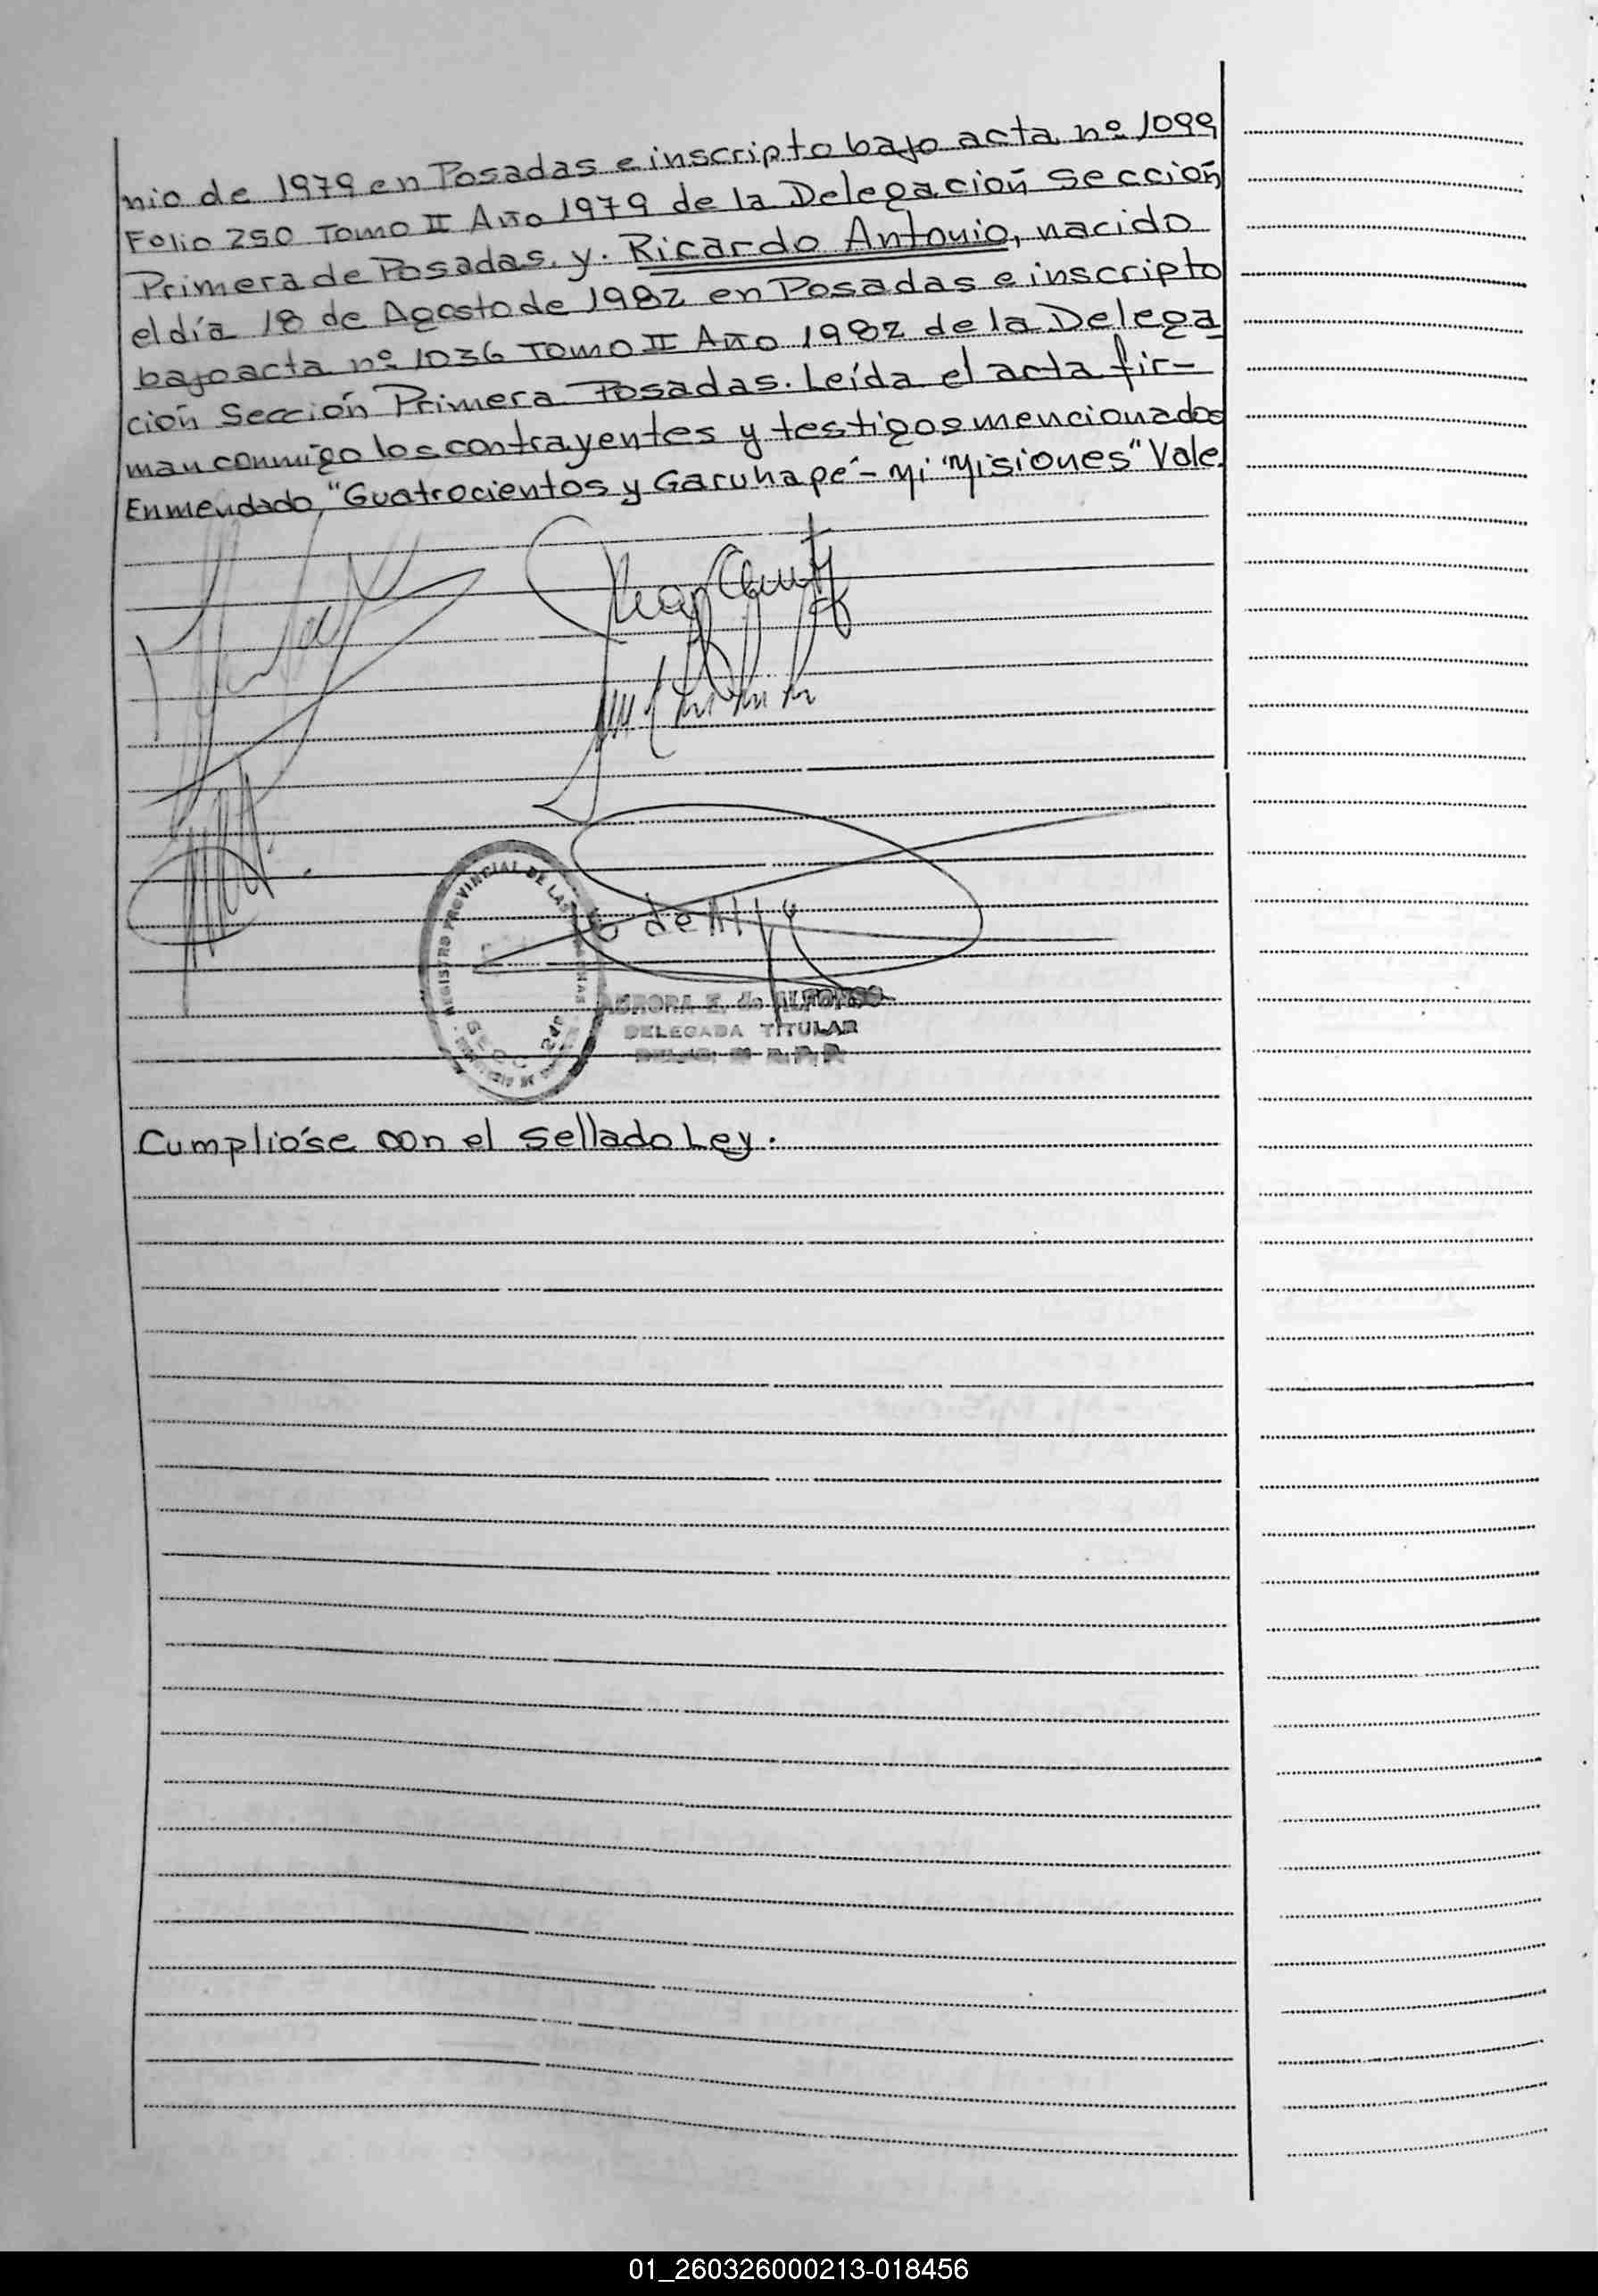 nio de 1979 en Posadas e inscripto bajo acta nº 1099
Folio 250 Tomo II Año 1979 de la Delegación Sección
Primera de Posadas. y. Ricardo Antonio, nacido
el día 18 de Agosto de 1982 en Posadas e inscripto
bajo acta nº 1036 Tomo II Año 1982 de la Delega
ción Sección Primera Posadas. Leída el acta fir-
man conmigo los contrayentes y testigos mencionados
Enmendado, "Guatrocientos y Garuhapé - Mi "Misiones" Vale.
REGISTRO PROVINCIAL DE LAS PERSONAS
de
AURORA E. de ALFONSO
DELEGADA TITULAR
Cumplióse con el sellado Ley.
01_260326000213-018456